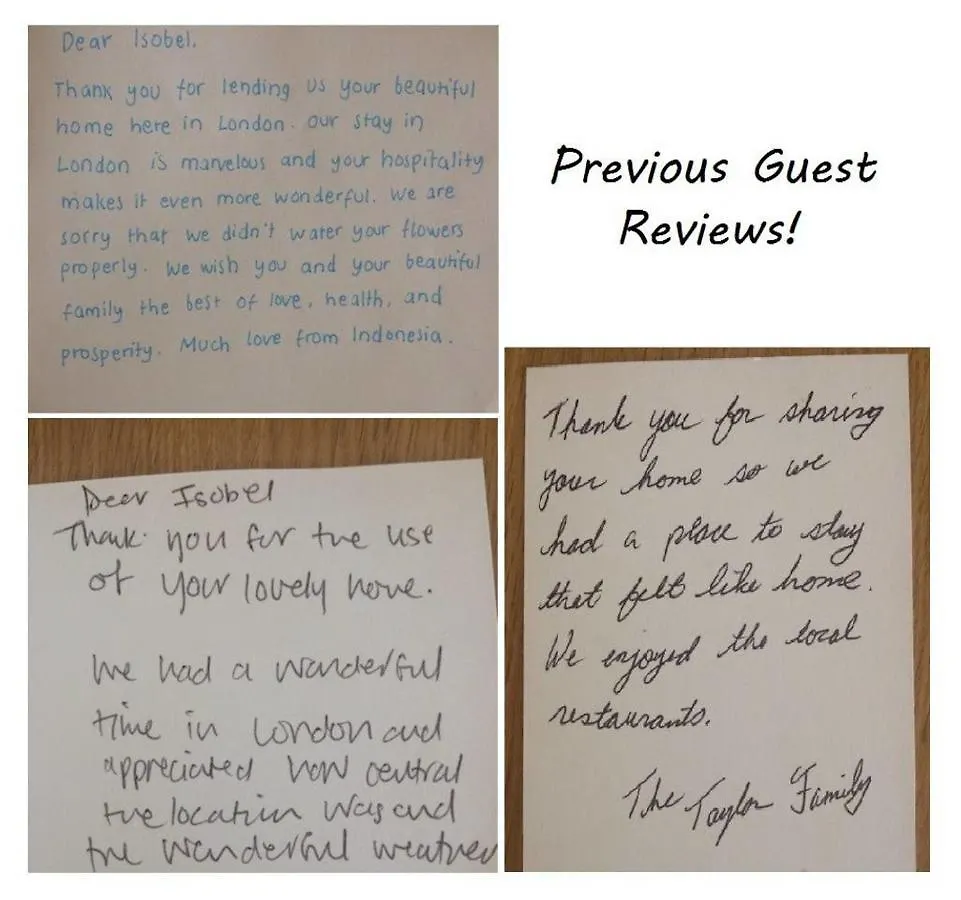 Dear Isobel,
Thank you for lending us your beautiful
home here in London. Our stay in
London is marvelous and your hospitality
makes it even more wonderful. We are
sorry that we didn't water your flowers
properly. We wish you and your beautiful
family the best of love, health, and
prosperity. Much love from Indonesia.
Previous Guest
Reviews!
Dear Isobel
Thank you for the use
of your lovely home.
We had a wonderful
time in London and
appreciated how central
the location was and
the wonderful weather
Thank you for sharing
your home so we
had a place to stay
that felt like home.
We enjoyed the local
restaurants.
The Taylor Family